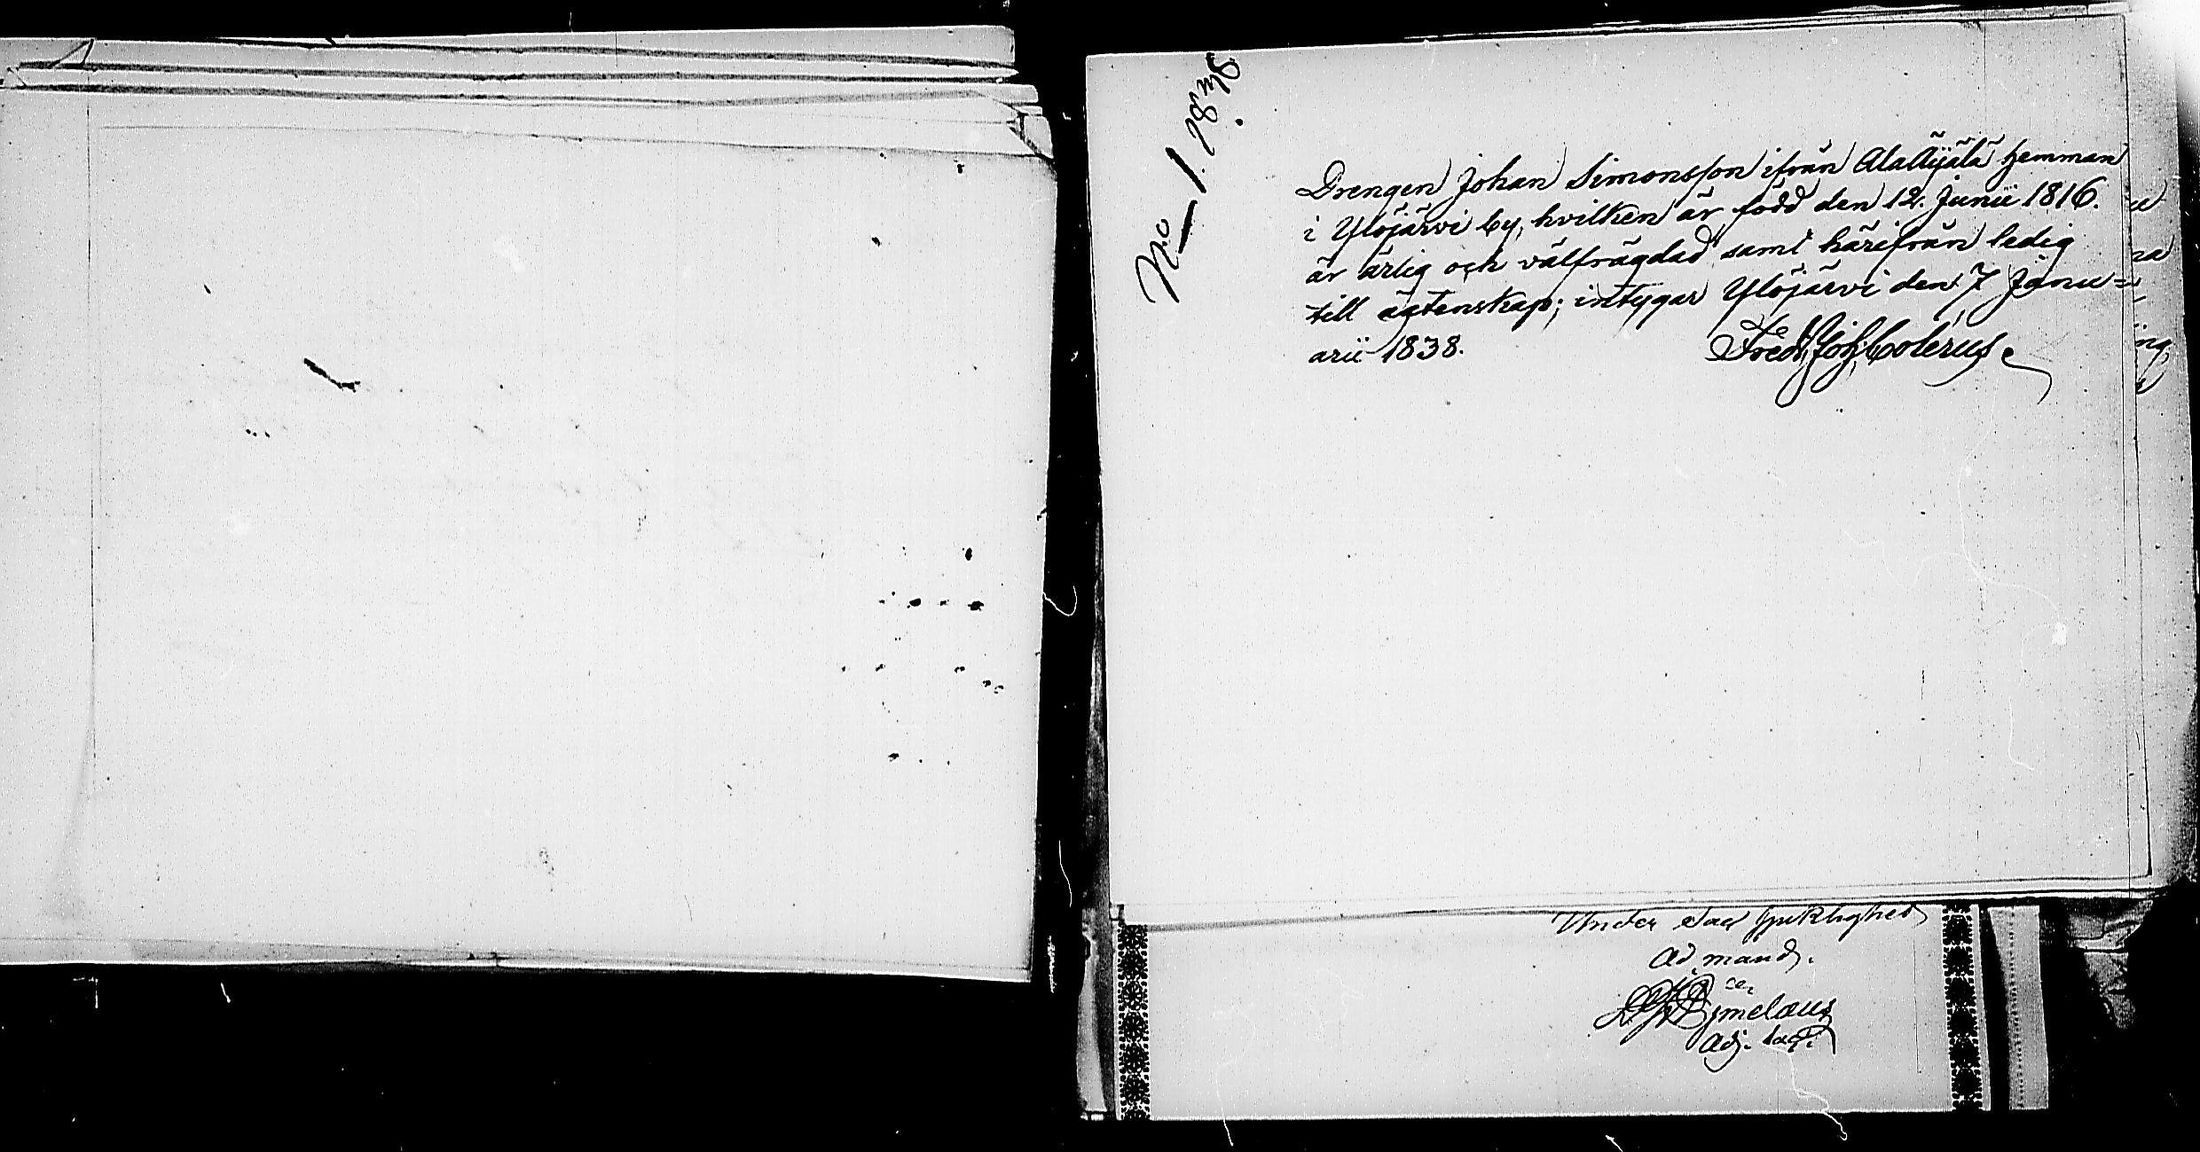 No 1. 1838.
Drengen Johan Simonsson ifrån Ala Äijälä hemman
i Ylöjärvi by, hvilken är född den 12. Junii 1816.
är ärlig och välfrägdad samt härifrån ledig
till ägtenskap; intygar Ylöjärvi den 7 Janu=
arii 1838. Fredr. Joh. Colerus.
Under
Ad mand.
Adj.